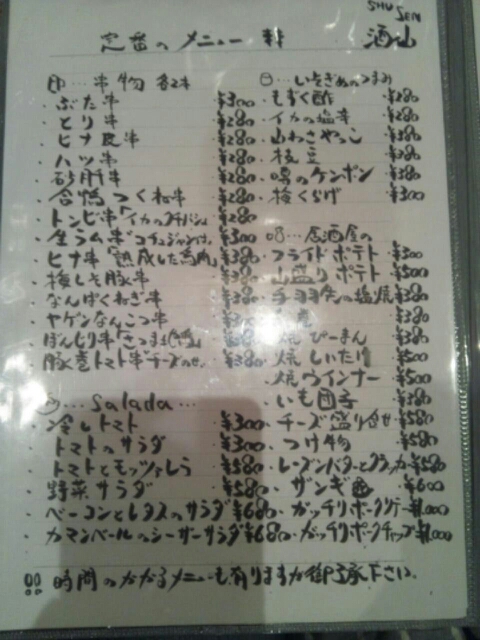 SHU SEN
定番のメニュー 酒山
串物 各2本
・ぶた串 ¥300
・とり串 ¥280
・ヒナ皮串 ¥280
・ハツ串 ¥280
・砂肝串 ¥280
・合鴨つくね串 ¥280
・トンビ串「イカのクチバシ」 ¥280
・生ラム串 コチュジャン付 ¥300
・ヒナ串「熟成した鳥肉」 ¥380
・梅しそ豚串 ¥380
・なんばくねぎ串 ¥380
・ヤゲンなんこつ串
・ぼんじり串「さつま地鶏」 ¥380
・豚巻トマト串チーズのせ ¥380
… salada …
・冷しトマト ¥300
・トマトのサラダ ¥580
・トマトとモッツァレラ ¥580
・野菜サラダ ¥580
・ベーコンとレタスのサラダ ¥680
・カマンベールのシーザーサラダ ¥680
…いそぎめのつまみ
・もずく酢 ¥280
・イカの塩辛 ¥280
・山わさやっこ ¥380
・枝豆 ¥380
・噂のケンポン ¥380
・梅くらげ ¥300
…居酒屋の
・フライドポテト ¥300
・山盛りポテト ¥500
・塩焼 ¥380
¥380
・焼ぴーまん ¥380
・焼しいたけ ¥500
・焼ウインナー ¥500
・いも団子 ¥380
・チーズ盛り合せ ¥580
・つけ物 ¥580
・レーズンバターとクラッカー ¥580
・ザンギ ¥600
・ガッチリポークソテー ¥1,000
・ガッチリポークチャップ ¥1,000
!! 時間のかかるメニューも有りますが御了承下さい。